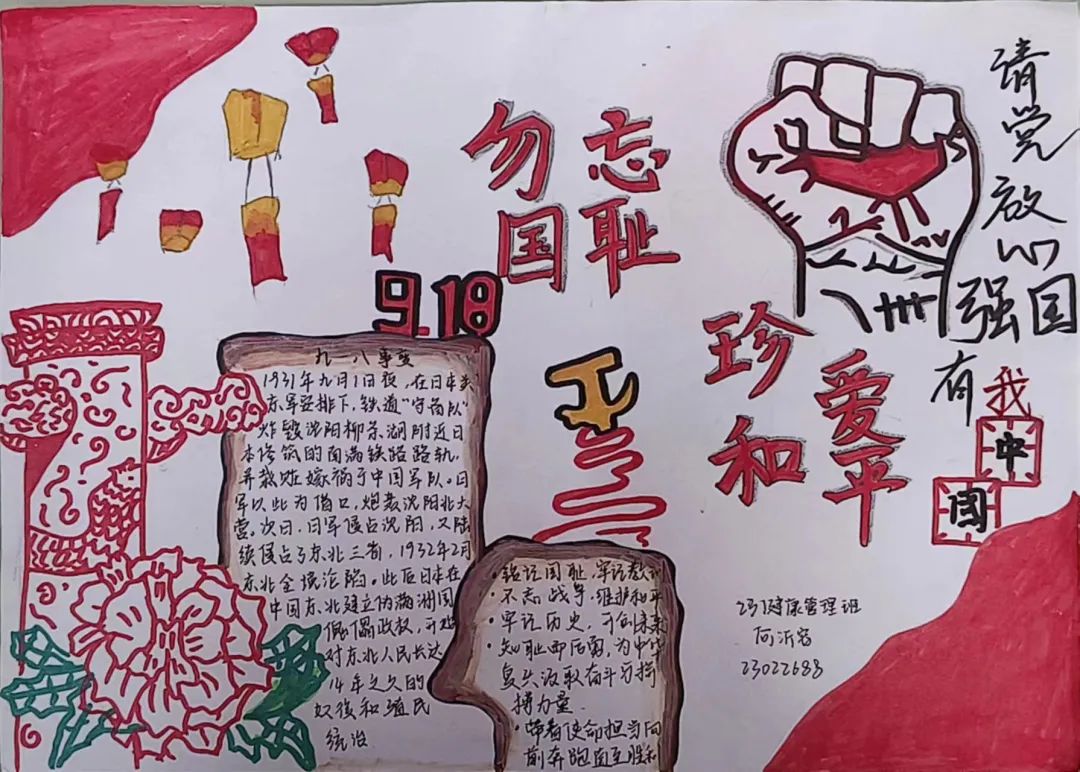 勿忘
国耻
珍爱
和平
请党放心
强国
有我
中
国
9.18
九一八事变
1931年九月1日夜,在日本关
东军安排下,铁道“守备队”
炸毁沈阳柳条湖附近日
本修筑的南满铁路路轨.
并栽赃嫁祸于中国军队。日
军以此为借口,炮轰沈阳北大
营。次日,日军侵占沈阳,又陆
续侵占了东北三省,1932年2月
东北全境沦陷。此后日本在
中国东北建立伪满洲国
傀儡政权,开始
对东北人民长达
14年之久的
奴役和殖民
统治
·铭记国耻,牢记教训
·不忘战争,维护和平
·牢记历史,开创未来
·知耻而后勇,为中华
复兴汲取奋斗习拼
搏力量.
·带着使命担当向
前奔跑直至胜利
231健康管理班
何沂容
23022688